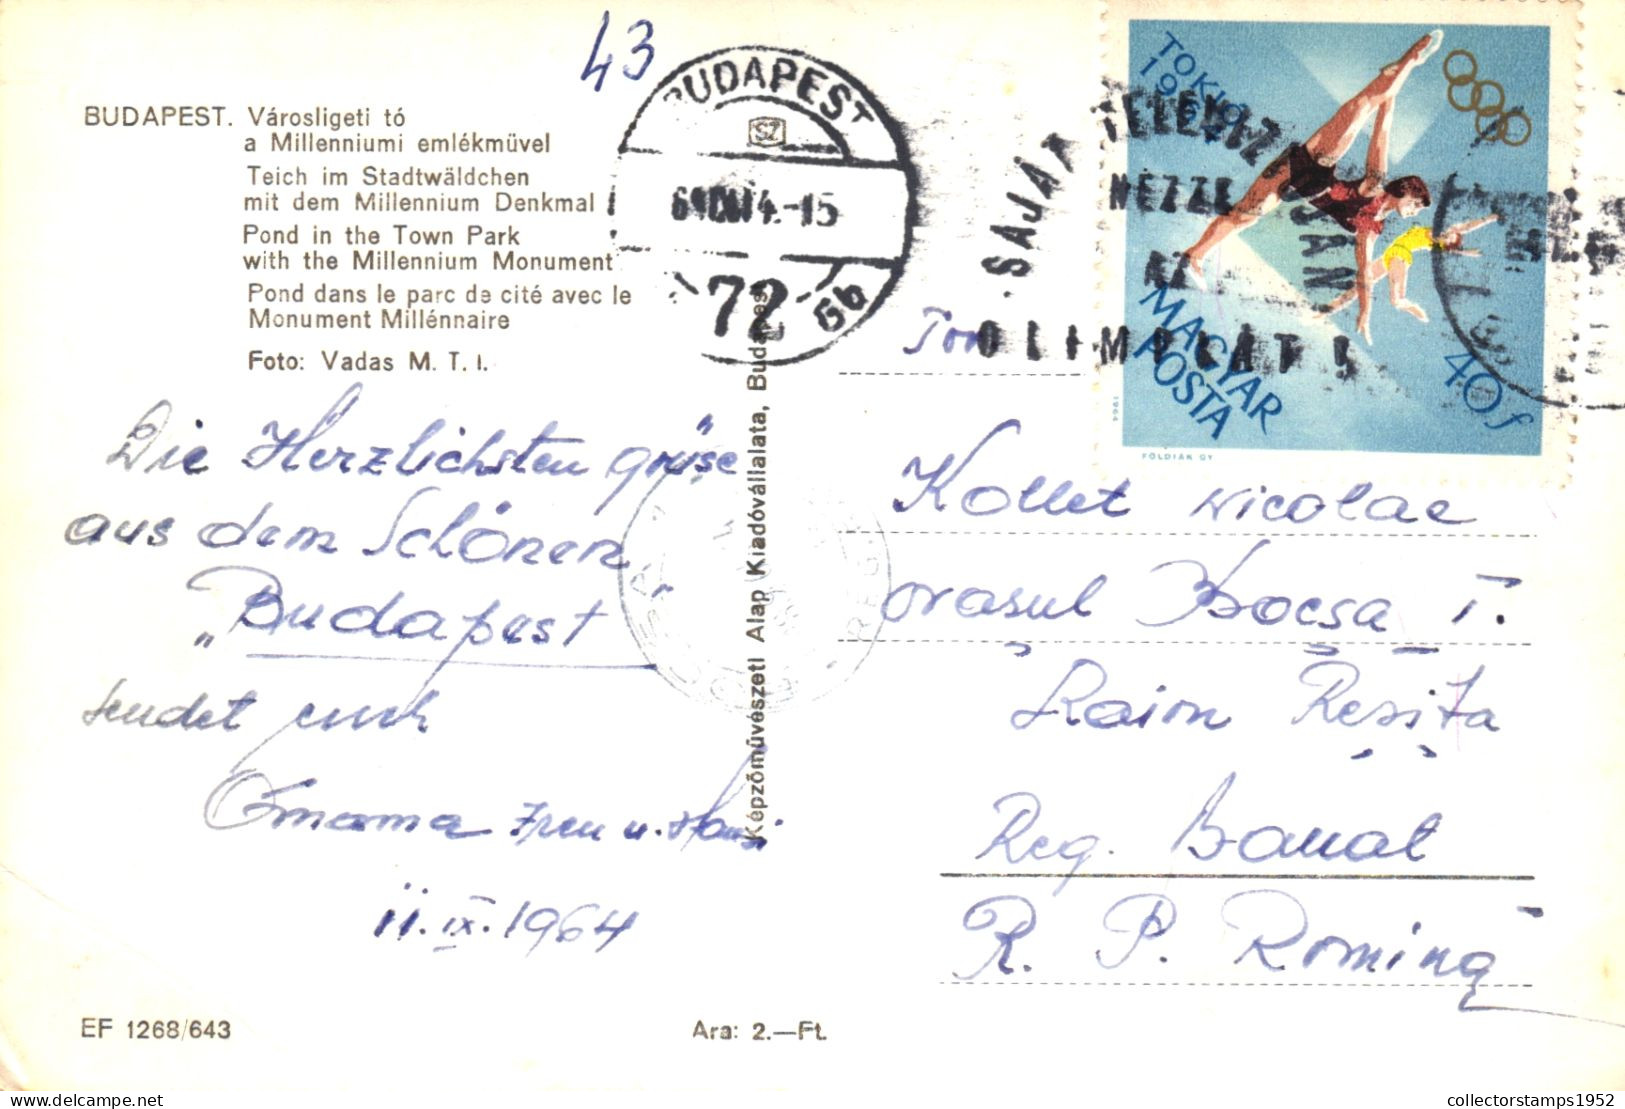 43
BUDAPEST. Városligeti tó
a Millenniumi emlékmüvel
Teich im Stadtwäldchen
mit dem Millennium Denkmal
Pond in the Town Park
with the Millennium Monument
Pond dans le parc de cité avec le
Monument Millénnaire
Foto: Vadas M. T. I.
BUDAPEST
SZ
72
6b
SAJÁT TELEVIZ
NÉZZE
AZ
OLIMPIÁT!
TOKIÓ
1964
MAGYAR
POSTA
40f
1964
FÖLDIÁK GY
Die Herzlichsten grüse
aus dem Schönen
„Budapest"
sendet euch
Omama Iren u. Hansi
11. IX. 1964
Képzőművészeti Alap Kiadóvállalata, Budapest
Tov
Kollet Nicolae
orasul Bocsa I.
Raion Reșița
Reg. Banat
R. P. Romina
EF 1268/643
Ara: 2.—Ft.
collectorstamps1952